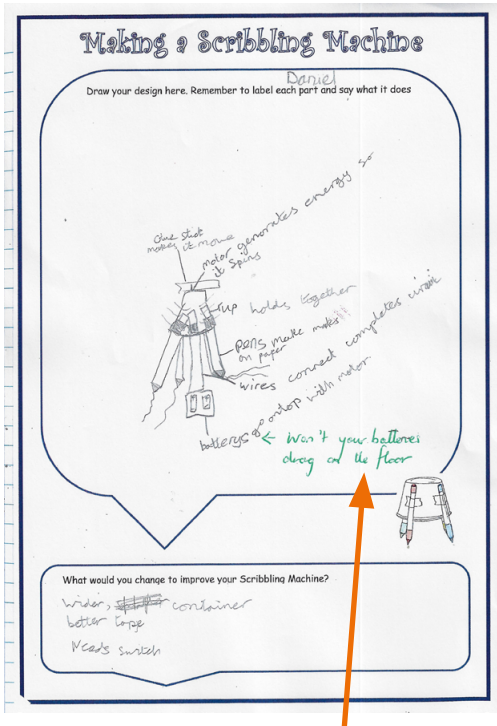 Making a Scribbling Machine
Daniel
Draw your design here. Remember to label each part and say what it does
Glue stick
makes it move
motor generates energy so
it spins
cup holds together
pens make makes
on paper
wires connect completes
batterys go ontop with motor
← Won't your batteries
drag on the floor
What would you change to improve your Scribbling Machine?
wider, container
better tape
Needs switch